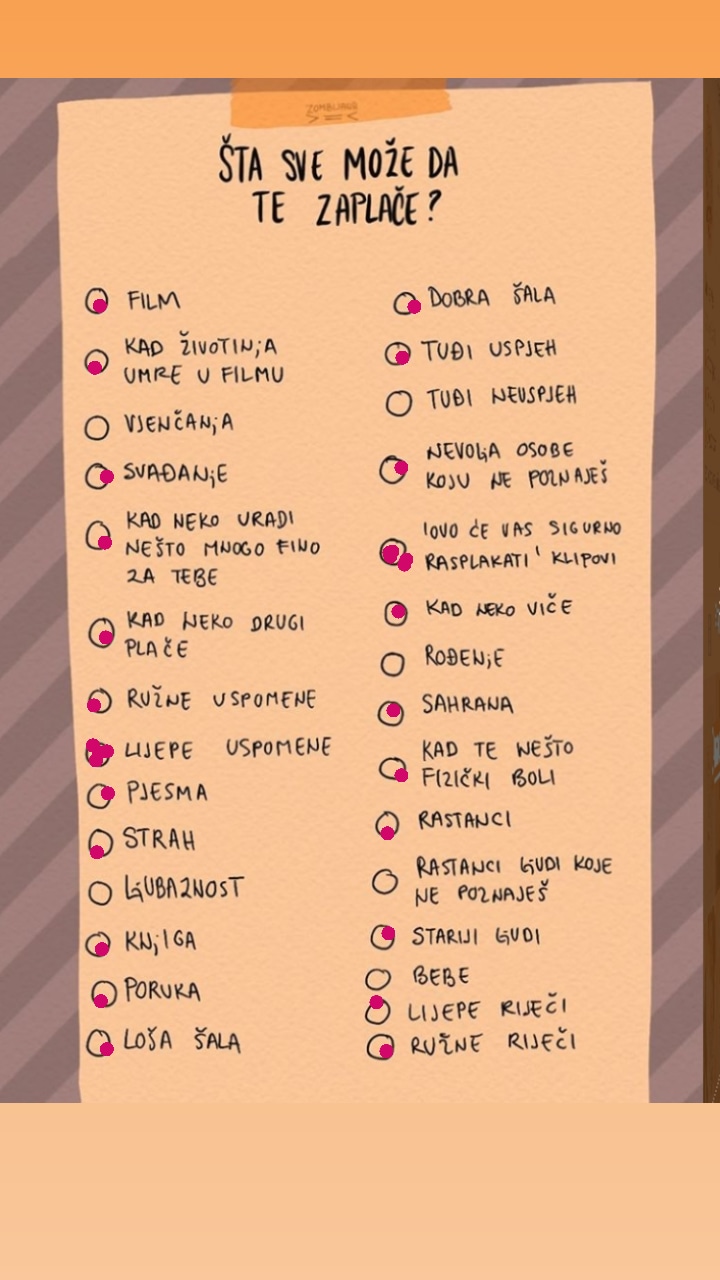 ZOMBIJANA
ŠTA SVE MOŽE DA
TE ZAPLAČE?
FILM
KAD ŽIVOTINJA
UMRE U FILMU
VJENČANJA
SVAĐANJE
KAD NEKO URADI
NEŠTO MNOGO FINO
ZA TEBE
KAD NEKO DRUGI
PLAČE
RUŽNE USPOMENE
LIJEPE USPOMENE
PJESMA
STRAH
LJUBAZNOST
KNJIGA
PORUKA
LOŠA ŠALA
DOBRA ŠALA
TUĐI USPJEH
TUĐI NEUSPJEH
NEVOLJA OSOBE
KOJU NE POZNAJEŠ
'OVO ĆE VAS SIGURNO
RASPLAKATI' KLIPOVI
KAD NEKO VIČE
ROĐENJE
SAHRANA
KAD TE NEŠTO
FIZIČKI BOLI
RASTANCI
RASTANCI LJUDI KOJE
NE POZNAJEŠ
STARIJI LJUDI
BEBE
LIJEPE RIJEČI
RUŽNE RIJEČI